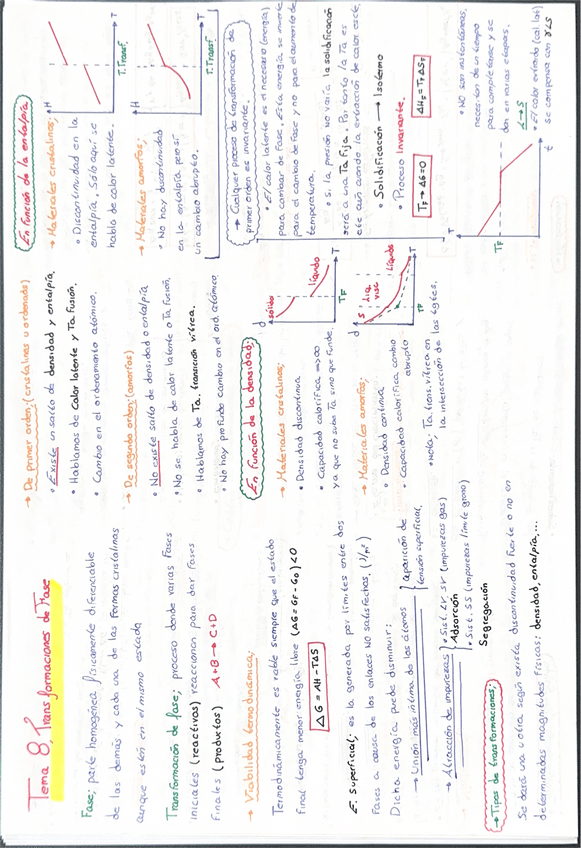 Tema 8, Transformaciones de Fase
Fase; parte homogénea físicamente diferenciable
de las demás y cada una de las formas cristalinas
aunque estén en el mismo estado
Transformación de fase; proceso donde varias fases
iniciales (reactivos) reaccionan para dar fases
finales (productos) A+B → C+D
→ Viabilidad termodinámica;
Termodinámicamente es viable siempre que el estado
final tenga menor energía libre (ΔG = GF - G0) < 0
ΔG = ΔH - TΔS
E. Superficial; es la generada por límites entre dos
fases a causa de los enlaces NO satisfechos (J/m²)
Dicha energía puede disminuir:
→ Unión más íntima de los átomos } aparición de
tensión superficial.
→ Atracción de impurezas
• Sist. LV, SV (impurezas gas)
Adsorción
• Sist. SS (impurezas límite grano)
Segregación
→ Tipos de transformaciones;
Se dará una u otra según exista discontinuidad fuerte o no en
determinadas magnitudes físicas: densidad, entalpía,...
→ De primer orden; (cristalinas u ordenada)
• Existe un salto de densidad y entalpía
• Hablamos de Calor latente y Ta fusión.
• Cambio en el ordenamiento atómico.
→ De segundo orden; (amorfos)
• No existe salto de densidad o entalpía
• No se habla de calor latente o Ta fusión.
• Hablamos de Ta. transición vítrea.
• No hay profundo cambio en el ord. atómico
En función de la densidad;
→ Materiales cristalinos;
• Densidad discontinua
• Capacidad calorífica ⇒ ∞
ya que no sube Ta sino que funde.
d
sólido
líquido
TF
T
→ Materiales amorfos;
• Densidad continua
• Capacidad calorífica cambio
abrupto
* Nota; Ta. trans. vítrea en
la intersección de las tgtes.
d
S
LIQ.
VISC
Líquido
TF
T
En función de la entalpía
→ Materiales cristalinos;
• Discontinuidad en la
entalpía. Sólo aquí se
habla de calor latente.
H
T. Transf.
T
→ Materiales amorfos;
• No hay discontinuidad
en la entalpía pero sí
un cambio abrupto.
H
T. Transf.
T
→ Cualquier proceso de transformación de
primer orden es invariante.
• El calor latente es el necesario (energía)
para cambiar de fase. Esta energía se invierte
para el cambio de fase y no para el aumento de
temperatura.
• Si la presión no varía la solidificación
será a una Ta fija. Por tanto la Ta es
cte aún cuando la extracción de calor es cte.
• Solidificación → Isotermo
• Proceso Invariante.
TF → ΔG=0
ΔHF = TF ΔSF
T
TF
t
• No son instantáneas,
necesitan de un tiempo
para completarse y se
dan en varias etapas.
L → S
• El calor extraído (cal lat)
se compensa con γLS